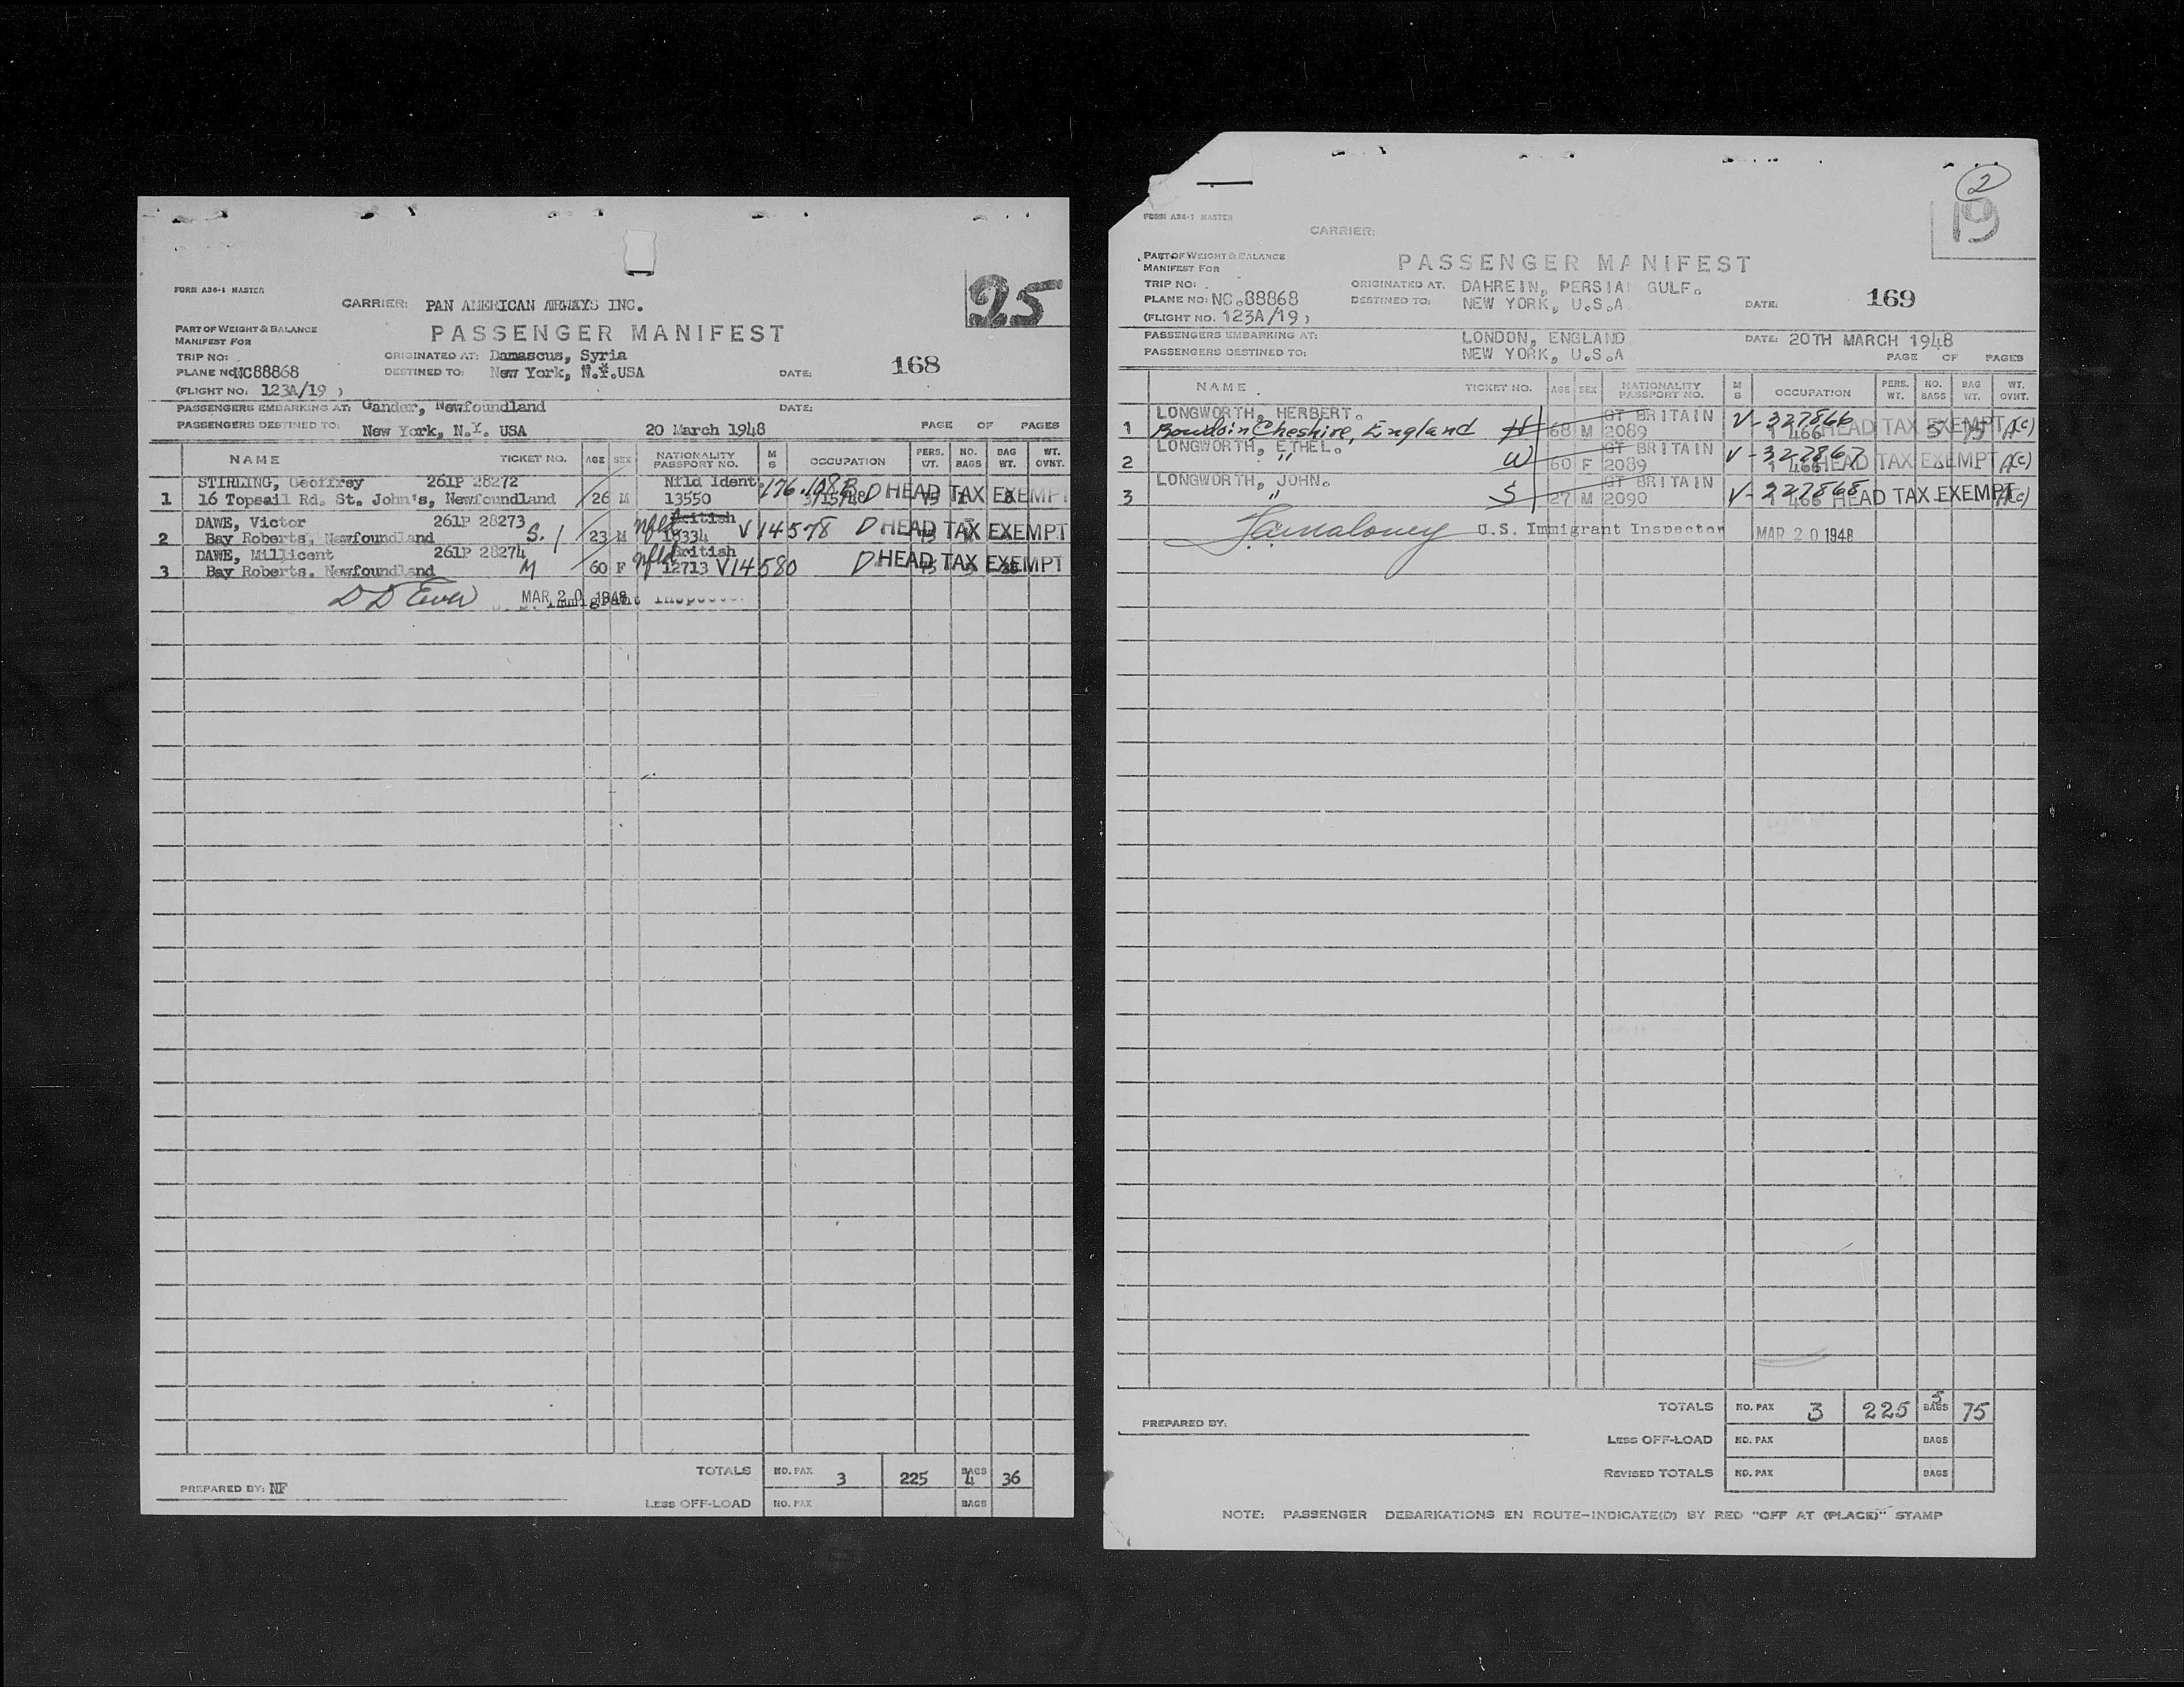 25
FORM A36-1 MASTER
CARRIER: PAN AMERICAN AIRWAYS INC.
PART OF WEIGHT & BALANCE
MANIFEST FOR
PASSENGER MANIFEST
TRIP NO:
ORIGINATED AT: Damascus, Syria
168
PLANE NO: NC88868
DESTINED TO: New York, N.Y. USA
DATE:
(FLIGHT NO. 123A/19 )
PASSENGERS EMBARKING AT: Gander, Newfoundland
DATE:
PASSENGERS DESTINED TO: New York, N.Y. USA
20 March 1948
PAGE OF PAGES
NAME TICKET NO. AGE SEX NATIONALITY PASSPORT NO. M S OCCUPATION PERS. WT. NO. BAGS BAG WT. WT. OVNT.
STIRLING, Geoffrey 261P 28272 Nfld Ident. 176.108B
1 16 Topsail Rd. St. John's, Newfoundland 26 M 13550 3/15/48 D HEAD TAX EXEMPT
DAWE, Victor 261P 28273 British
2 Bay Roberts, Newfoundland S. 23 M Nfld 13334 V14578 D HEAD TAX EXEMPT
DAWE, Millicent 261P 28274 British
3 Bay Roberts. Newfoundland M 60 F Nfld 12713 V14580 D HEAD TAX EXEMPT
MAR 20 1948 Immigrant Inspector
TOTALS NO. PAX 3 225 BAGS 4 36
PREPARED BY: NF
LESS OFF-LOAD NO. PAX BAGS
2
19
FORM A36-1 MASTER
CARRIER:
PART OF WEIGHT & BALANCE
MANIFEST FOR
PASSENGER MANIFEST
TRIP NO:
ORIGINATED AT. DAHREIN, PERSIAN GULF.
PLANE NO: NC.88868
DESTINED TO: NEW YORK, U.S.A
DATE:
169
(FLIGHT NO. 123A/19 )
PASSENGERS EMBARKING AT: LONDON, ENGLAND
DATE: 20TH MARCH 1948
PASSENGERS DESTINED TO: NEW YORK, U.S.A
PAGE OF PAGES
NAME TICKET NO. AGE SEX NATIONALITY PASSPORT NO. M S OCCUPATION PERS. WT. NO. BAGS BAG WT. WT. OVNT.
LONGWORTH, HERBERT. GT BRITAIN V-327866
1 Cheshire, England H 68 M 2089 1 466 HEAD TAX EXEMPT 5 75 A(c)
LONGWORTH, ETHEL. GT BRITAIN V-327867
2 " W 60 F 2089 1 466 HEAD TAX EXEMPT A(c)
LONGWORTH, JOHN. GT BRITAIN V-327868
3 " S 27 M 2090 1 466 HEAD TAX EXEMPT A(c)
U.S. Immigrant Inspector MAR 20 1948
TOTALS NO. PAX 3 225 BAGS 5 75
PREPARED BY:
LESS OFF-LOAD NO. PAX BAGS
REVISED TOTALS NO. PAX BAGS
NOTE: PASSENGER DEBARKATIONS EN ROUTE-INDICATE(D) BY RED "OFF AT (PLACE)" STAMP